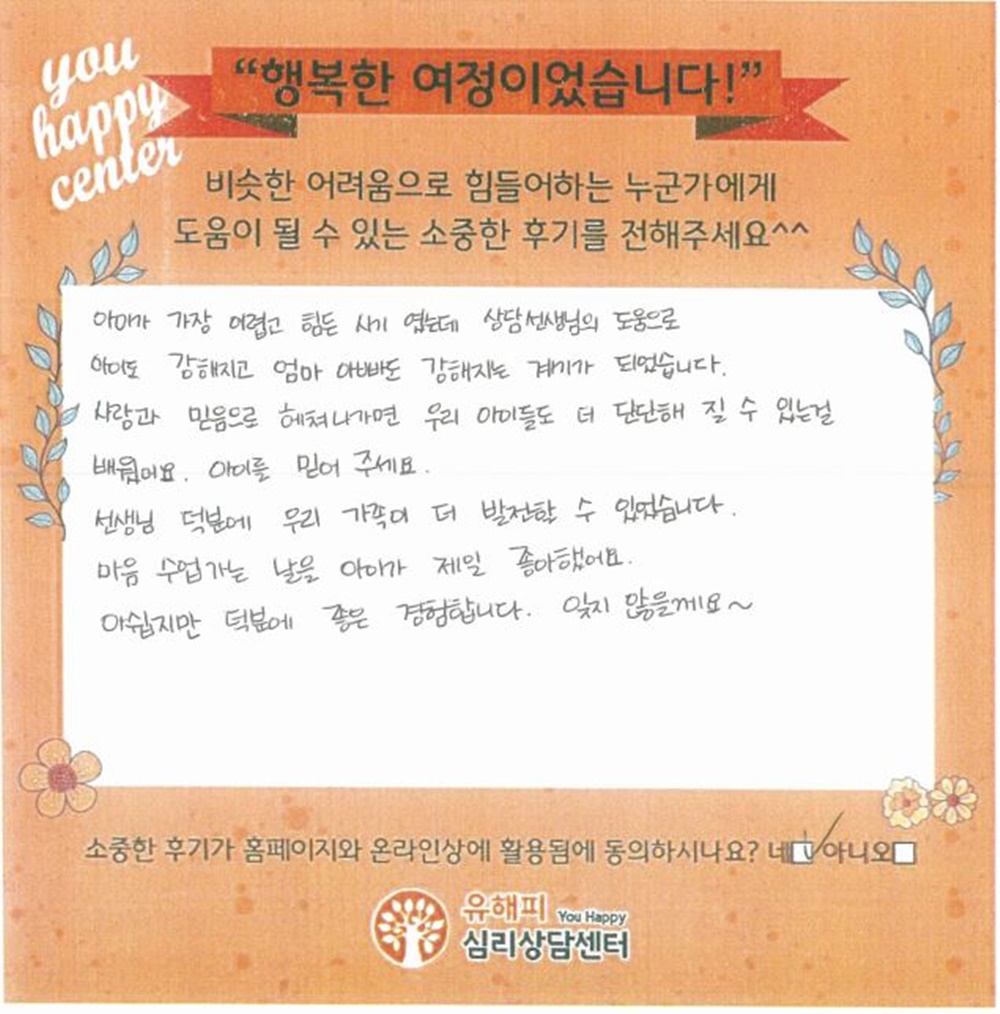 you
happy
center
“행복한 여정이었습니다!”
비슷한 어려움으로 힘들어하는 누군가에게
도움이 될 수 있는 소중한 후기를 전해주세요^^
아이가 가장 어렵고 힘든 시기 였는데 상담선생님의 도움으로
아이도 강해지고 엄마 아빠도 강해지는 계기가 되었습니다.
사랑과 믿음으로 헤쳐나가면 우리 아이들도 더 단단해 질 수 있는걸
배웠어요. 아이를 믿어 주세요.
선생님 덕분에 우리 가족이 더 발전할 수 있었습니다.
마음 수업가는 날을 아이가 제일 좋아했어요.
아쉽지만 덕분에 좋은 경험합니다. 잊지 않을께요~
소중한 후기가 홈페이지와 온라인상에 활용됨에 동의하시나요? 네 아니오
유해피 You Happy
심리상담센터